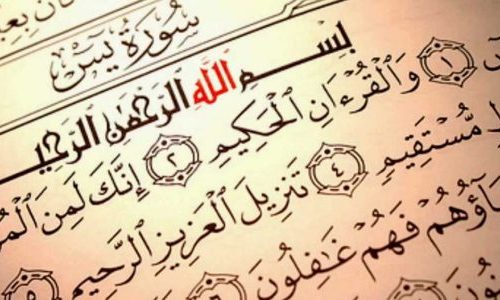 سُورَةُ يسٓ
بِسْمِ اللَّهِ الرَّحْمَٰنِ الرَّحِي
١ وَالْقُرْءَانِ الْحَكِيمِ ٢ إِنَّكَ لَمِنَ الْمُر
مُّسْتَقِيمٍ ٤ تَنزِيلَ الْعَزِيزِ الرَّحِيمِ ٥
آؤُهُمْ فَهُمْ غَٰفِلُونَ ٦